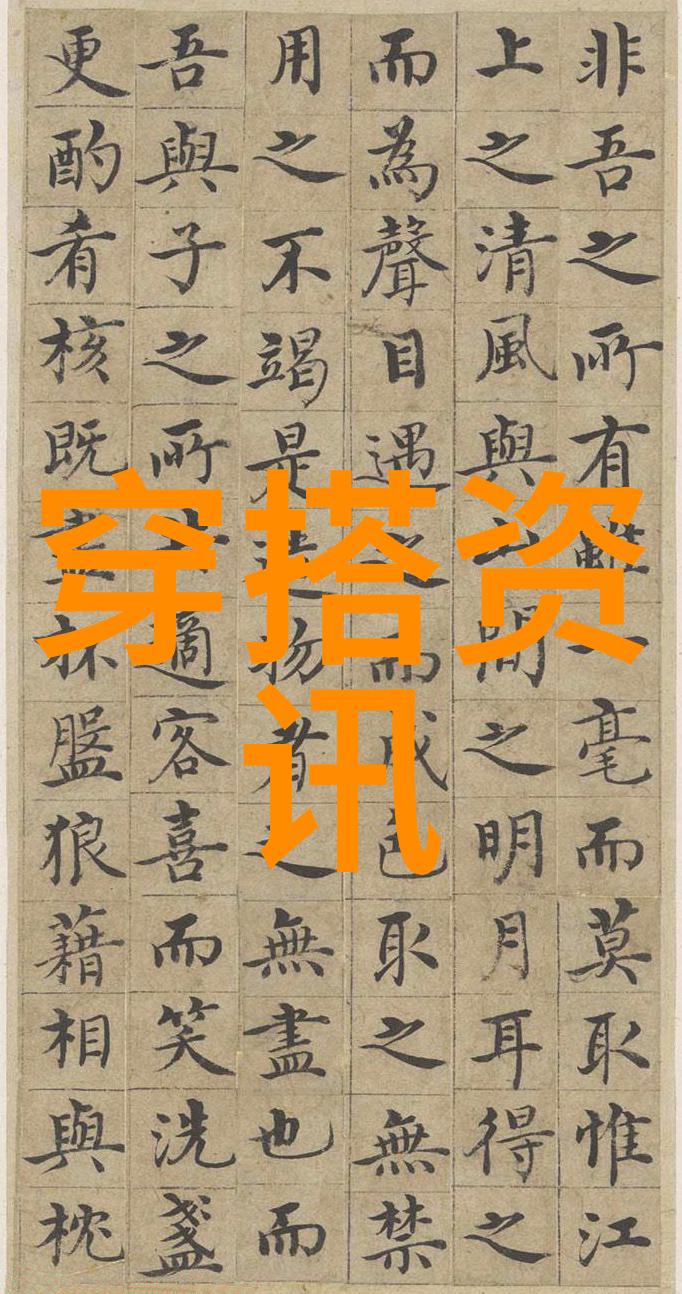 非吾之所有雖一毫而莫取惟江
上之清風與山間之明月耳得之
而為聲目遇之而成色取之無禁
用之不竭是造物者之無盡也而
吾與子之所共適客喜而笑洗盞
更酌肴核既盡杯盤狼藉相與枕
穿搭资
讯